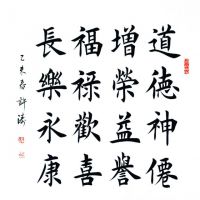 道德神僊
增榮益譽
福祿歡喜
長樂永康
乙未春 許